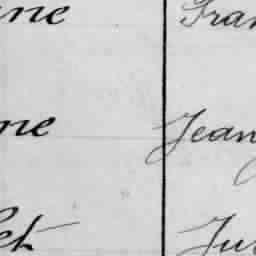 ne Fran
ne Jean
et Ju